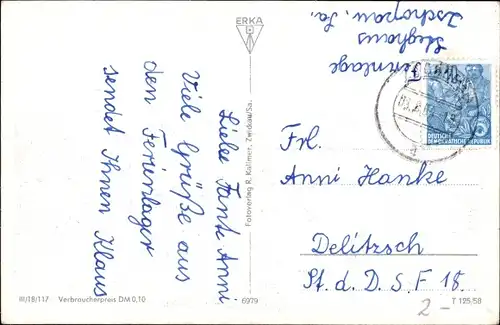 Liebe Tante Anni
Viele Grüße aus
den Ferienlager
sendet Ihnen Klaus
ERKA
Fotoverlag R. Kallmer, Zwickau/Sa.
Zschopau, Sa.
DEUTSCHE
DEMOKRATISCHE REPUBLIK
Frl.
Anni Hanke
Delitzsch
St. d. D. S. F 18.
2-
III/18/117 Verbraucherpreis DM 0,10
6979
T 125/58